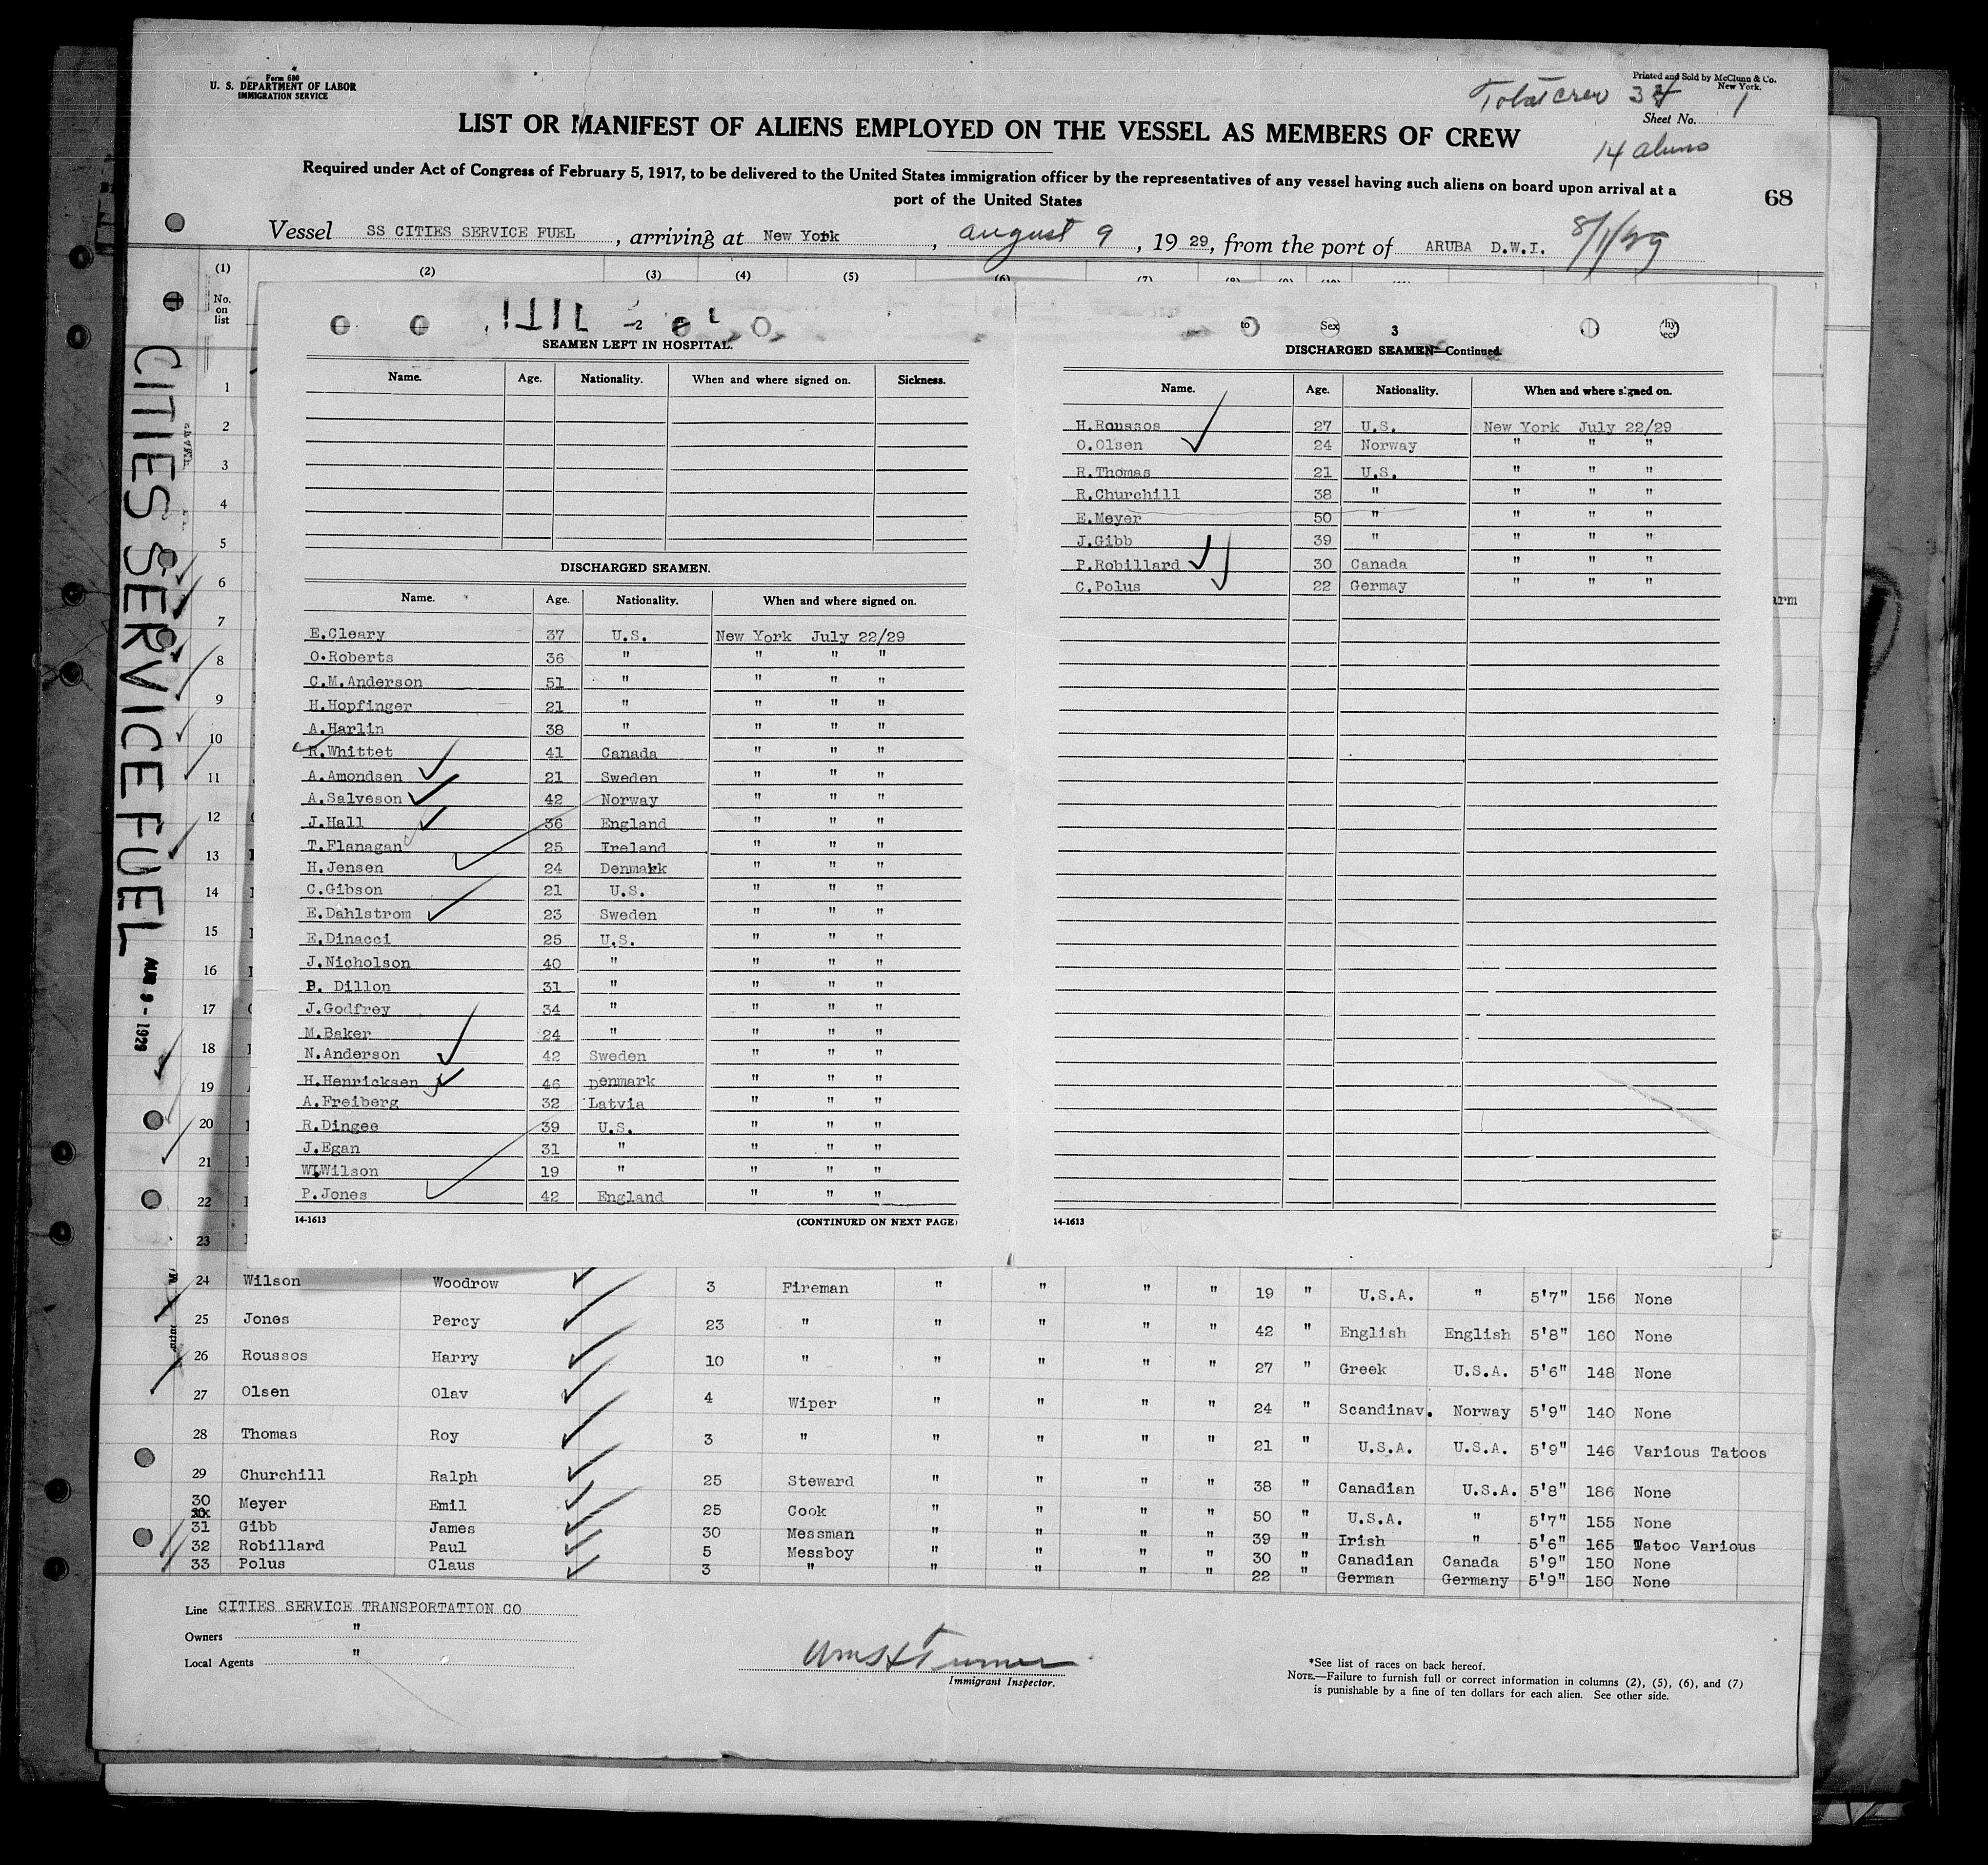 Form 680
U. S. DEPARTMENT OF LABOR
IMMIGRATION SERVICE
Printed and Sold by McClunn & Co.
New York.
Total crew
Sheet No. 1
LIST OR MANIFEST OF ALIENS EMPLOYED ON THE VESSEL AS MEMBERS OF CREW
14 aliens
Required under Act of Congress of February 5, 1917, to be delivered to the United States immigration officer by the representatives of any vessel having such aliens on board upon arrival at a
port of the United States
68
Vessel SS CITIES SERVICE FUEL, arriving at New York, august 9, 19 29, from the port of ARUBA D.W.I. 8/1/29
(1) (2) (3) (4) (5) (6) (7)
No. on list
CITIES SERVICE FUEL
AUG 9 - 1929
1
2
3
4
5
6
7
8
9
10
11
12
13
14
15
16
17
18
19
20
21
22
23
2
SEAMEN LEFT IN HOSPITAL.
Name. Age. Nationality. When and where signed on. Sickness.
DISCHARGED SEAMEN.
Name. Age. Nationality. When and where signed on.
E.Cleary 37 U.S. New York July 22/29
O.Roberts 36 " " " "
C.M.Anderson 51 " " " "
H.Hopfinger 21 " " " "
A.Harlin 38 " " " "
R.Whittet 41 Canada " " "
A.Amondsen 21 Sweden " " "
A.Salveson 42 Norway " " "
J.Hall 36 England " " "
T.Flanagan 25 Ireland " " "
H.Jensen 24 Denmark " " "
C.Gibson 21 U.S. " " "
E.Dahlstrom 23 Sweden " " "
E.Dinacci 25 U.S. " " "
J.Nicholson 40 " " " "
P. Dillon 31 " " " "
J.Godfrey 34 " " " "
M.Baker 24 " " " "
N.Anderson 42 Sweden " " "
H.Henricksen 46 Denmark " " "
A.Freiberg 32 Latvia " " "
R.Dingee 39 U.S. " " "
J.Egan 31 " " " "
W.Wilson 19 " " " "
P.Jones 42 England " " "
14-1613 (CONTINUED ON NEXT PAGE)
to Sex 3
DISCHARGED SEAMEN—Continued.
Name. Age. Nationality. When and where signed on.
H.Roussos 27 U.S. New York July 22/29
O.Olsen 24 Norway " " "
R.Thomas 21 U.S. " " "
R.Churchill 38 " " " "
E.Meyer 50 " " " "
J.Gibb 39 " " " "
P.Robillard 30 Canada " " "
C.Polus 22 Germay " " "
14-1613
24 Wilson Woodrow 3 Fireman " " " " 19 " U.S.A. " 5'7" 156 None
25 Jones Percy 23 " " " " " 42 " English English 5'8" 160 None
26 Roussos Harry 10 " " " " " 27 " Greek U.S.A. 5'6" 148 None
27 Olsen Olav 4 Wiper " " " " 24 " Scandinav. Norway 5'9" 140 None
28 Thomas Roy 3 " " " " " 21 " U.S.A. U.S.A. 5'9" 146 Various Tatoos
29 Churchill Ralph 25 Steward " " " " 38 " Canadian U.S.A. 5'8" 186 None
30 Meyer Emil 25 Cook " " " " 50 " U.S.A. " 5'7" 155 None
31 Gibb James 30 Messman " " " " 39 " Irish " 5'6" 165 Tatoo Various
32 Robillard Paul 5 Messboy " " " " 30 " Canadian Canada 5'9" 150 None
33 Polus Claus 3 " " " " " 22 " German Germany 5'9" 150 None
Line CITIES SERVICE TRANSPORTATION CO
Owners "
Local Agents "
Wm H Turner
Immigrant Inspector.
*See list of races on back hereof.
NOTE.—Failure to furnish full or correct information in columns (2), (5), (6), and (7)
is punishable by a fine of ten dollars for each alien. See other side.